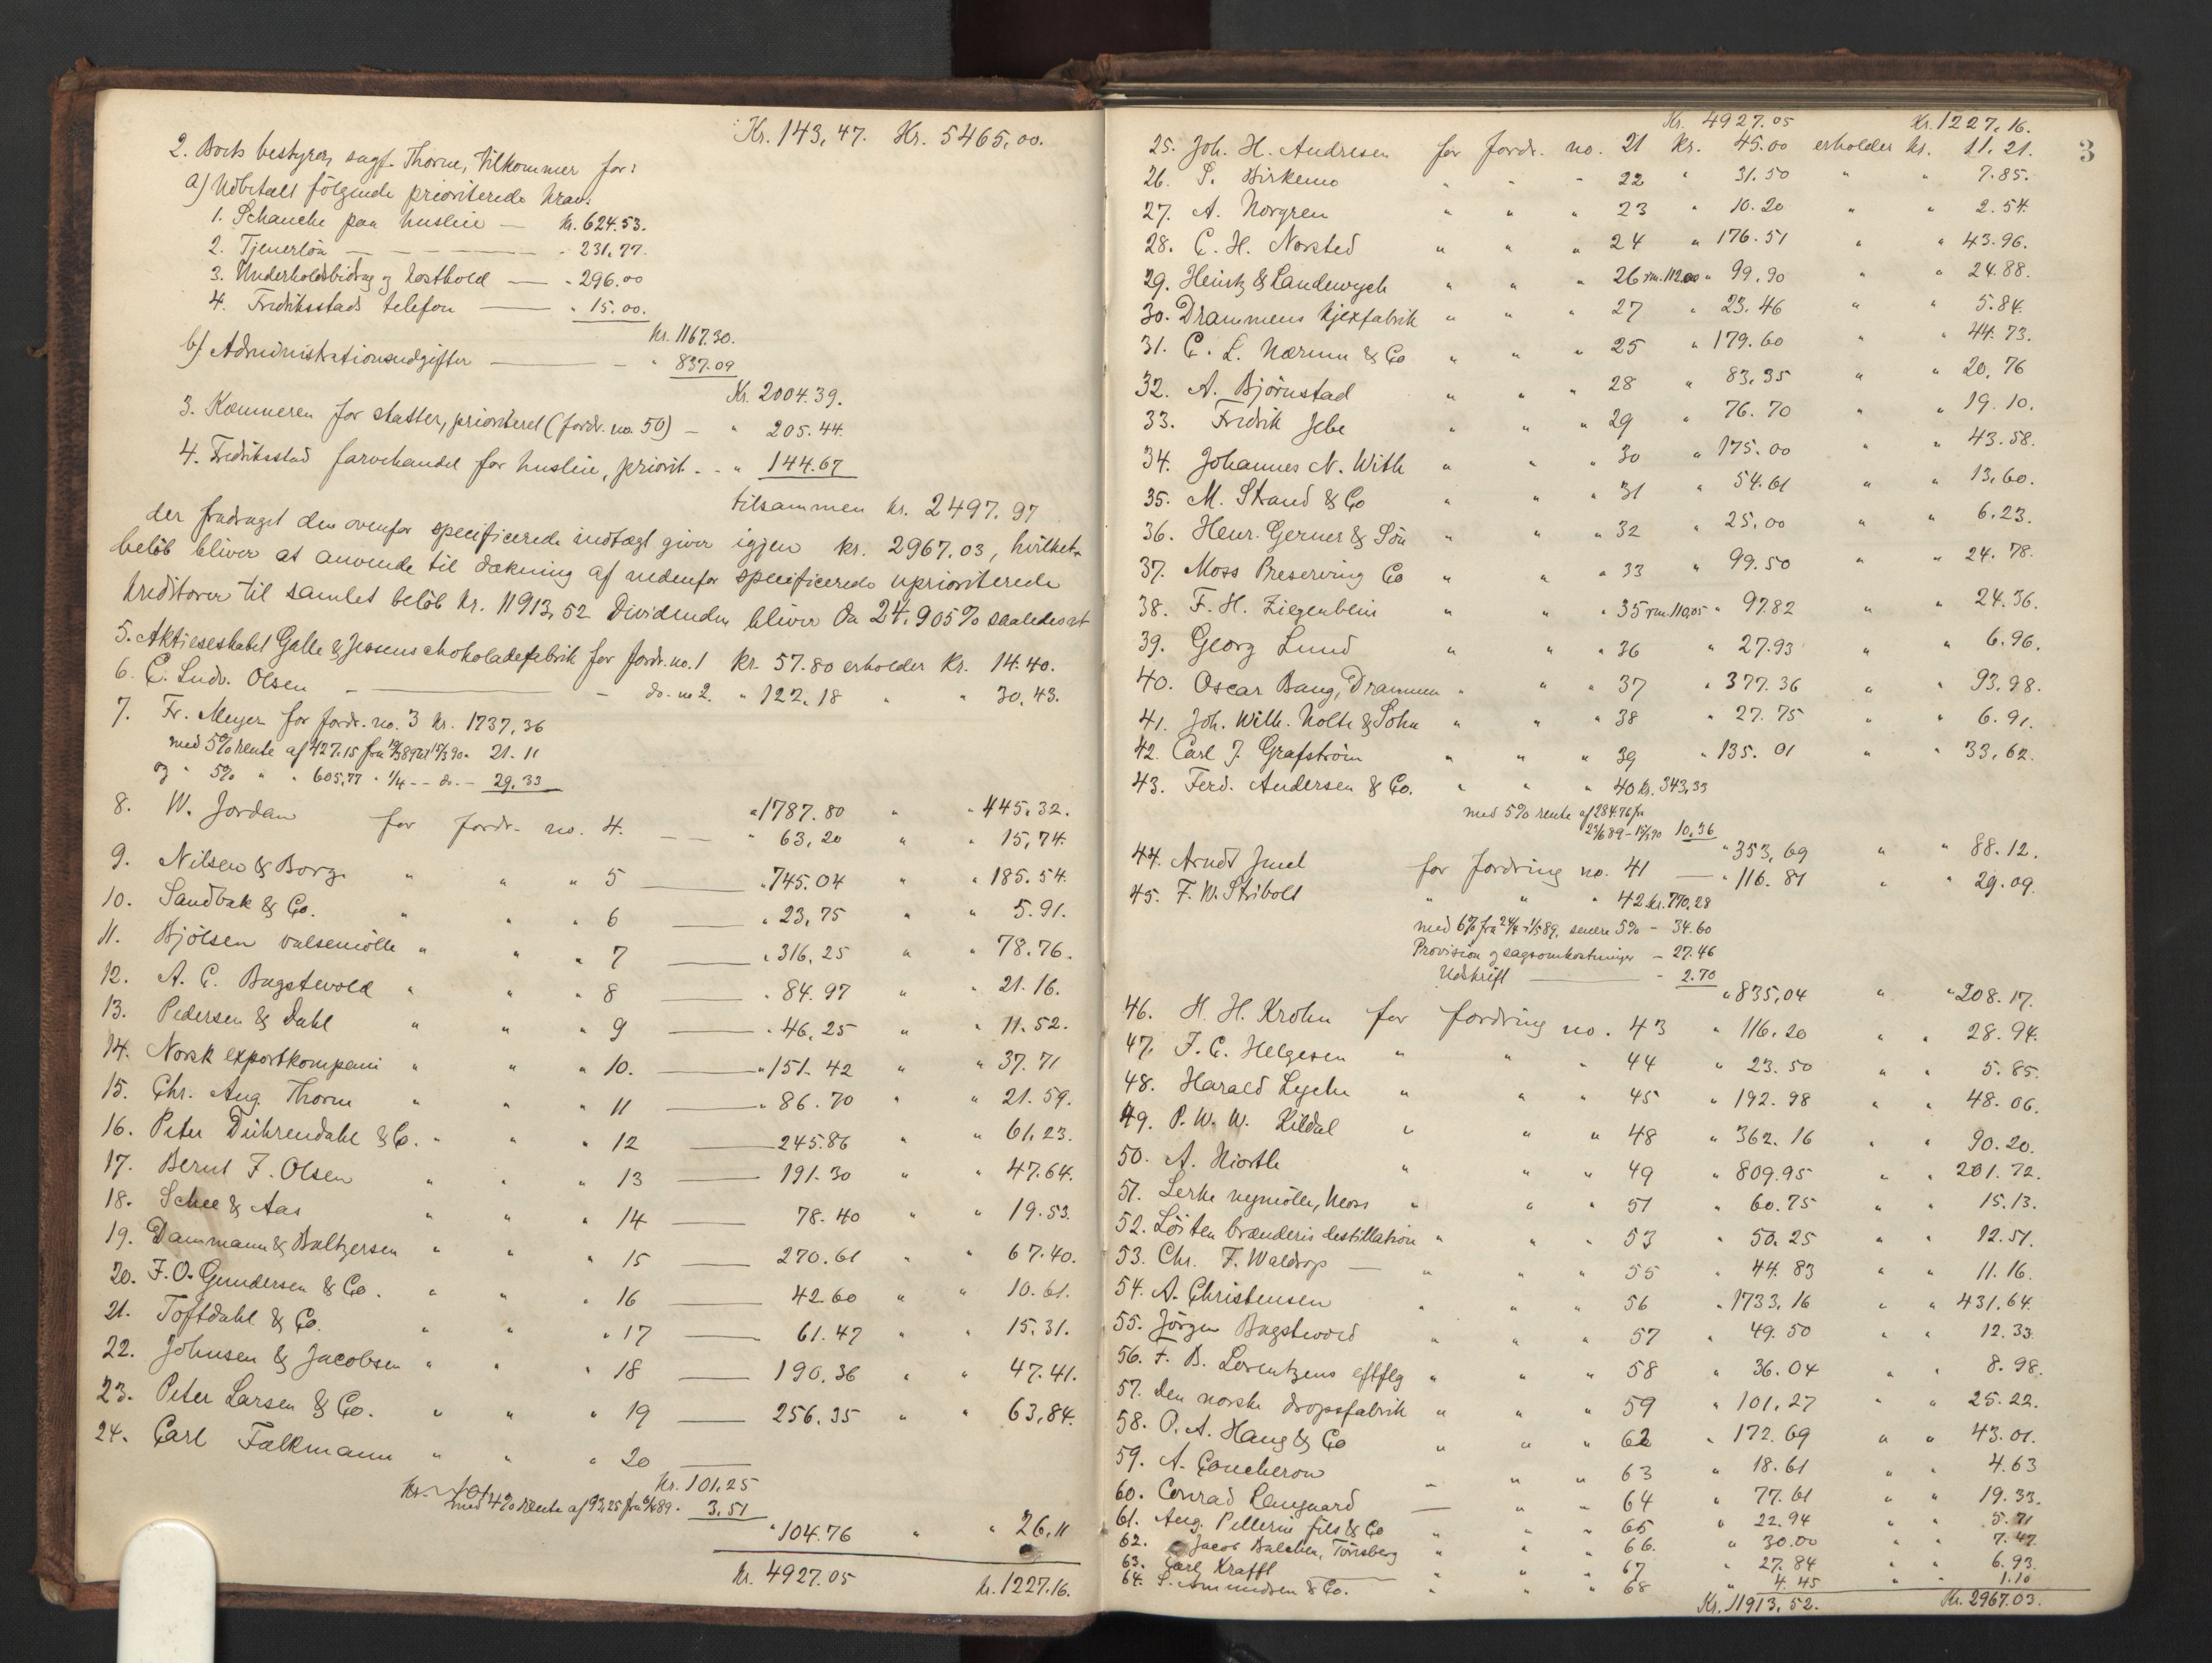 Kr. 143,47. Kr. 5465,00.
2. Boets bestyrer, sagf. Thorne, tilkommer for:
a) Udbetalt følgende prioriterede krav:
1. Schanche paa husleie — kr. 624.53.
2. Tjenerløn — — — " 231,77.
3. Underholdsbidrag og kosthold — " 296.00
4. Fredriksstads telefon — " 15.00.
Kr. 1167.30.
b) Administrationsudgifter — — " 837.09
Kr. 2004.39.
3. Kæmneren for skatter, prioriteret (fordr. no. 50) — " 205.44.
4. Fredriksstad farvehandel for husleie, priorit. - " 144.67
tilsammen kr. 2497.97
der fradraget den ovenfor specificerede indtægt giver igjen kr. 2967.03, hvilket
beløb bliver at anvende til dækning af nedenfor specificerede uprioriterede
kreditorer til samlet beløb kr. 11913,52 Dividenden bliver da 24,905% saaledes at
5. Aktieselskabet Galle & Jessens chokoladefabrik for fordr. no. 1 kr. 57.80 erholder kr. 14.40.
6. C. Ludv. Olsen — do. no 2. " 122.18 " " 30,43.
7. Fr. Meyer for fordr. no. 3 kr. 1737,36
med 5% rente af 427.15 fra 19/3 89 til 15/3 90 " 21.11
og " 5% " " 605,77 " 1/4 - - do. - 29.33
" 1787.80 " " 445,32.
8. W. Jordan for fordr. no. 4. — — " 63,20 " " 15,74.
9. Nilsen & Borg " " " 5 — " 745.04 " " 185.54.
10. Sandbak & Co. " " " 6 — " 23,75 " " 5.91.
11. Bjølsen valsemølle " " " 7 — " 316,25 " " 78.76.
12. A. C. Bagstevold " " " 8 — " 84.97 " " 21.16.
13. Pedersen & Dahl " " " 9 — " 46,25 " " 11.52.
14. Norsk exportkompani " " " 10. — " 151.42 " " 37.71
15. Chr. Aug. Thorne " " " 11 — " 86.70 " " 21.59.
16. Peter Dührendahl & Co. " " " 12 — 245.86 " " 61,23.
17. Bernt F. Olsen " " " 13 — 191.30 " " 47.64.
18. Schee & Aas " " " 14 — 78.40 " " 19.53.
19. Dammann & Baltzersen " " " 15 — 270.61 " " 67.40.
20. F. O. Gundersen & Co. " " " 16 — 42.60 " " 10.61.
21. Toftdahl & Co. " " " 17 — 61.47 " " 15,31.
22. Johnsen & Jacobsen " " " 18 — 190.36 " " 47.41.
23. Peter Larsen & Co. " " " 19 — 256.35 " " 63,84.
24. Carl Falkmann " " " 20 —
Kr. 101,25
med 4% rente af 93,25 fra 89 " 3,51
" 104.76 " " 26,11
Kr. 4927.05 kr. 1227.16.
3
Kr. 4927.05 Kr. 1227,16.
25. Joh. H. Andresen for fordr. no. 21 kr. 45.00 erholder kr. 11.21.
26. S. Birkemo " " " 22 " 31.50 " " 7.85.
27. A. Norgren " " " 23 " 10.20 " " 2.54.
28. C. H. Norsted " " " 24 " 176.51 " " 43.96.
29. Heintz & Landewych " " " 26 rm. 112.00 " 99.90 " " 24.88.
30. Drammens kjexfabrik " " " 27 " 23.46 " " 5.84.
31. C. L. Nærum & Co " " " 25 " 179.60 " " 44.73.
32. A. Bjørnstad " " " 28 " 83,35 " " 20,76
33. Fredrik Jebe " " " 29 " 76.70 " " 19.10.
34. Johannes N. With " " " 30 " 175.00 " " 43.58.
35. M. Strand & Co " " " 31 " 54.61 " " 13,60.
36. Henr. Gerner & Søn " " " 32 " 25,00 " " 6.23.
37. Moss Preserving Co " " " 33 " 99.50 " " 24.78.
38. F. H. Ziegenbein " " " 35 rm. 110,05 " 97.82 " " 24.36.
39. Georg Lund " " " 36 " 27.93 " " 6.96.
40. Oscar Bang, Drammen " " " 37 " 377.36 " " 93.98.
41. Joh. Wilh. Nolte & Sohn " " " 38 " 27.75 " " 6.91.
42. Carl J. Grafstrøm " " " 39 " 135.01 " " 33,62.
43. Ferd. Andersen & Co. " " " 40 kr. 343,33
med 5% rente af 284.76 fra
23/6 89 - 15/3 90 10,36
" 353,69 " " 88.12.
44. Arndt Juul for fordring no. 41 — " 116.81 " " 29.09.
45. F. W. Stribolt " " " 42 kr. 770.28
med 6% fra 24/4 - 1/5 89, senere 5% - 34.60
Provision og sagsomkostninger - 27.46
Udskrift — - 2.70
" 835,04 " " 208.17.
46. H. H. Krohn for fordring no. 43 " 116.20 " " 28.94.
47. F. C. Helgesen " " " 44 " 23.50 " " 5.85.
48. Harald Lyche " " " 45 " 192.98 " " 48.06.
49. P. W. W. Kildal " " " 48 " 362.16 " " 90.20.
50. A. Hiorth " " " 49 " 809.95 " " 201.72.
51. Lerke nymølle, Moss " " " 51 " 60.75 " " 15.13.
52. Løiten brænderis destillation " " " 53 " 50.25 " " 12.51.
53. Chr. F. Waldrop — " " " 55 " 44.83 " " 11.16.
54. A. Christensen " " " 56 " 1733,16 " " 431,64.
55. Jørgen Bagstevold " " " 57 " 49.50 " " 12.33.
56. F. B. Lorentzens eftflg " " " 58 " 36.04 " " 8.98.
57. Den norske dropsfabrik " " " 59 " 101,27 " " 25.22.
58. O. A. Haug & Co " " " 62 " 172.69 " " 43.01.
59. A. Coucheron " " " 63 " 18.61 " " 4.63
60. Conrad Langaard — " " 64 " 77.61 " " 19.33.
61. Aug. Pellerin fils & Co " " " 65 " 22.94 " " 5.71
62. Jacob Balchen, Tønsberg " " " 66. " 30.00 " " 7.47.
63. Carl Krafft — " " " 67 " 27.84 " " 6.93.
64. S. Amundsen & Co. " " " 68 " 4.45 " " 1.10
Kr. 11913,52. Kr. 2967.03.